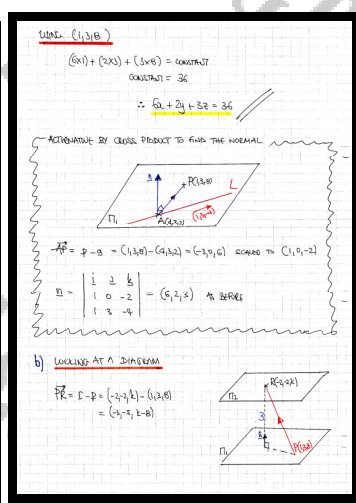 USING (1,3,8)
(6×1) + (2×3) + (3×8) = CONSTANT
CONSTANT = 36
∴ 6x + 2y + 3z = 36
ALTERNATIVE BY CROSS PRODUCT TO FIND THE NORMAL
n
P(1,3,8)
L
Π₁
A(4,3,2)
(1,3,-4)
AP = p - a = (1,3,8) - (4,3,2) = (-3,0,6) SCALED TO (1,0,-2)
n = | i j k |
| 1 0 -2 | = (6,2,3) AS BEFORE
| 1 3 -4 |
b) LOOKING AT A DIAGRAM
PR = r - p = (-2,-2,k) - (1,3,8)
= (-3,-5, k-8)
R(-2,-2,k)
Π₂
3
n
P(1,3,8)
Π₁